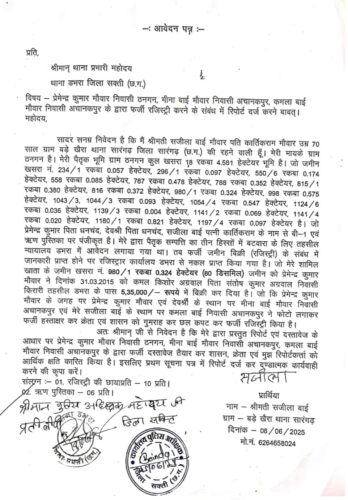 -: आवेदन पत्र :-
प्रति,
श्रीमान् थाना प्रभारी महोदय
थाना डभरा जिला सक्ती (छ.ग.)
विषय – प्रेमेन्द्र कुमार मौवार निवासी ठनगन, मीना बाई मौवार निवासी अचानकपुर, कमला बाई
मौवार निवासी अचानकपुर के द्वारा फर्जी रजिस्ट्री करने के संबंध में रिपोर्ट दर्ज करने बाबत्।
महोदय,
सादर सनम्र निवेदन है कि मैं श्रीमती सजीला बाई मौवार पति कार्तिकराम मौवार उम्र 70
साल ग्राम बड़े खैरा थाना सारंगढ़ जिला सारंगढ़ (छ.ग.) की रहने वाली हूँ। मेरी मायके ग्राम
ठनगन है। मेरी पैतृक भूमि ग्राम ठनगन कुल खसरा 18 रकबा 4.581 हेक्टेयर भूमि है। जो जमीन
खसरा नं. 234/1 रकबा 0.057 हेक्टेयर, 296/1 रकबा 0.097 हेक्टेयर, 550/6 रकबा 0.174
हेक्टेयर, 558 रकबा 0.085 हेक्टेयर, 787 रकबा 0.478 हेक्टेयर, 788 रकबा 0.352 हेक्टेयर, 815/1
रकबा 0.380 हेक्टेयर, 816 रकबा 0.372 हेक्टेयर, 980/1 रकबा 0.324 हेक्टेयर, 998 रकबा 0.575
हेक्टेयर, 1043/3, 1044/3 रकबा 0.093 हेक्टेयर, 1054/4 रकबा 0.547 हेक्टेयर, 1124/6
रकबा 0.036 हेक्टेयर, 1139/3 रकबा 0.004 हेक्टेयर, 1141/2 रकबा 0.069 हेक्टेयर, 1141/4
रकबा 0.020 हेक्टेयर, 1180/1 रकबा 0.821 हेक्टेयर, 1197/4 रकबा 0.097 हेक्टेयर है। जो
प्रेमेन्द्र कुमार पिता धनचंद, देवश्री पिता धनचंद, सजीला बाई पत्नी कार्तिकराम के नाम से बी-1 एवं
ऋण पुस्तिका पर पंजीकृत है। मेरे द्वारा पैतृक सम्पति का तीन हिस्सों में बटवारा के लिए तहसील
न्यायालय डभरा में आवेदन लगाया गया था। तब फर्जी जमीन बिक्री (रजिस्ट्री) के संबंध में
जानकारी प्राप्त होने पर रजिस्ट्रार कार्यालय डभरा से नकल प्राप्त किया गया है। जो मेरे शामिल
खाता के जमीन खसरा नं. 980/1 रकबा 0.324 हेक्टेयर (80 डिसमिल) जमीन को प्रेमेन्द्र कुमार
मौवार ने दिनांक 31.03.2015 को कमल किशोर अग्रवाल पिता संतोष कुमार अग्रवाल निवासी
किरारी तहसील डभरा के पास 5,35,000/– रूपये में बिक्री कर दिया है। जो कि प्रेमेन्द्र कुमार
मौवार के जगह पर प्रेमेन्द्र कुमार मौवार एवं देवश्री के स्थान पर मीना बाई मौवार निवासी
अचानकपुर एवं मेरे सजीला बाई के स्थान पर कमला बाई निवासी अचानकपुर ने फोटो लगाकर
फर्जी हस्ताक्षर कर क्रेता एवं शासन को गुमराह कर छल कपट कर फर्जी रजिस्ट्री किया है।
अतः श्रीमान् जी से निवेदन है कि मेरे द्वारा प्रस्तुत रिपोर्ट एवं दस्तावेज के
आधार पर प्रेमेन्द्र कुमार मौवार निवासी ठनगन, मीना बाई मौवार निवासी अचानकपुर, कमला बाई
मौवार निवासी अचानकपुर के द्वारा फर्जी दस्तावेज तैयार कर शासन, क्रेता एवं मुझ रिपोर्टकर्ता को
आर्थिक क्षति कारित किया है। इसलिए प्रथम सूचना पत्र में रिपोर्ट दर्ज कर दण्डात्मक कार्यवाही
करने की कृपा करें।
संलग्न :– 01. रजिस्ट्री की छायाप्रति – 10 प्रति।
02. ऋण पुस्तिका – 06 प्रति।
सजीला
प्रार्थिया
नाम – श्रीमती सजीला बाई
ग्राम – बड़े खैरा थाना सारंगढ़
दिनांक – 08/06/2025
मो.नं. 6264658024
श्रीमान पुलिस अधिक्षक महोदय जी
जिला सक्ति